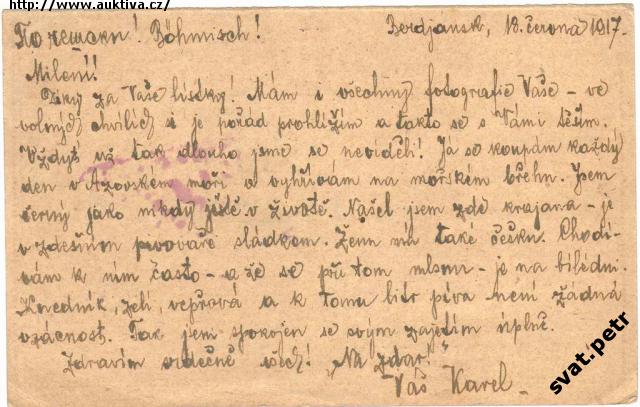 http://www.auktiva.cz/
По чешски! Böhmisch! Berdjansk, 18. června 1917.
Milení!
Díky za Vaše lístky! Mám i všechny fotografie Vaše - ve
volných chvílích si je pořád prohlížím a takto se s Vámi těším.
Vždyť už tak dlouho jsme se neviděli! Já se koupám každý
den v Azovském moři a vyhřívám na mořském břehu. Jsem
černý jako nikdy ještě v životě. Našel jsem zde krajana - je
v zdejším pivovaře sládkem. Ženu má také češku. Chodí-
vám k ním často - a že se při tom mlsou - je na bílédni.
Knedlík, zelí, vepřová a k tomu litr piva není žádná
vzácnost. Tak jsem spokojen se svým zajetím úplně.
Zdravím srdečně všech! "Na zdar!"
Váš Karel.
svat.petr